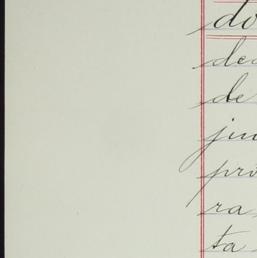 do
dea
de
jun
pro
ra
ta